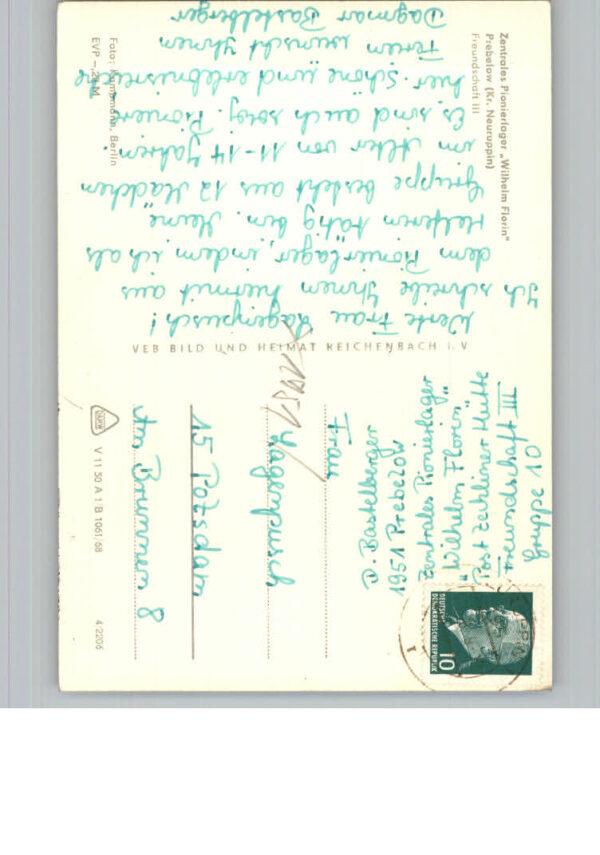 Zentrales Pionierlager „Wilhelm Florin"
Prebelow (Kr. Neuruppin)
Freundschaft III
Werte Frau Hagenpusch!
Ich schreibe Ihnen hiermit aus
dem Pionierlager, indem ich als
Helferin tätig bin. Meine
Gruppe besteht aus 12 Mädchen
im Alter von 11-14 Jahren.
Es sind auch sowj. Pioniere
hier. Schöne und erlebnisreiche
Ferien wünscht Ihnen
Dagmar Bastelberger
Foto: Kumpmann, Berlin
EVP -,20 M
VEB BILD UND HEIMAT REICHENBACH I. V
D. Bastelberger
1951 Prebelow
Zentrales Pionierlager
"Wilhelm Florin"
Post Zechliner Hütte
Freundschaft III
Gruppe 10
DEUTSCHE
DEMOKRATISCHE REPUBLIK
10
Frau
Hagenpusch
15 Potsdam
Am Brunnen 8
V 11 50 A 1/B 1061/68
4/2206